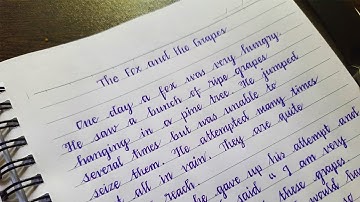 The Fox and the Grapes
One day a fox was very hungry.
He saw a bunch of ripe grapes
hanging in a pine tree. He jumped
several times but was unable to
seize them. He attempted many times
but all in vain. They are quite
reach.
he gave up his attempt and
said "I am very
these grapes
would have